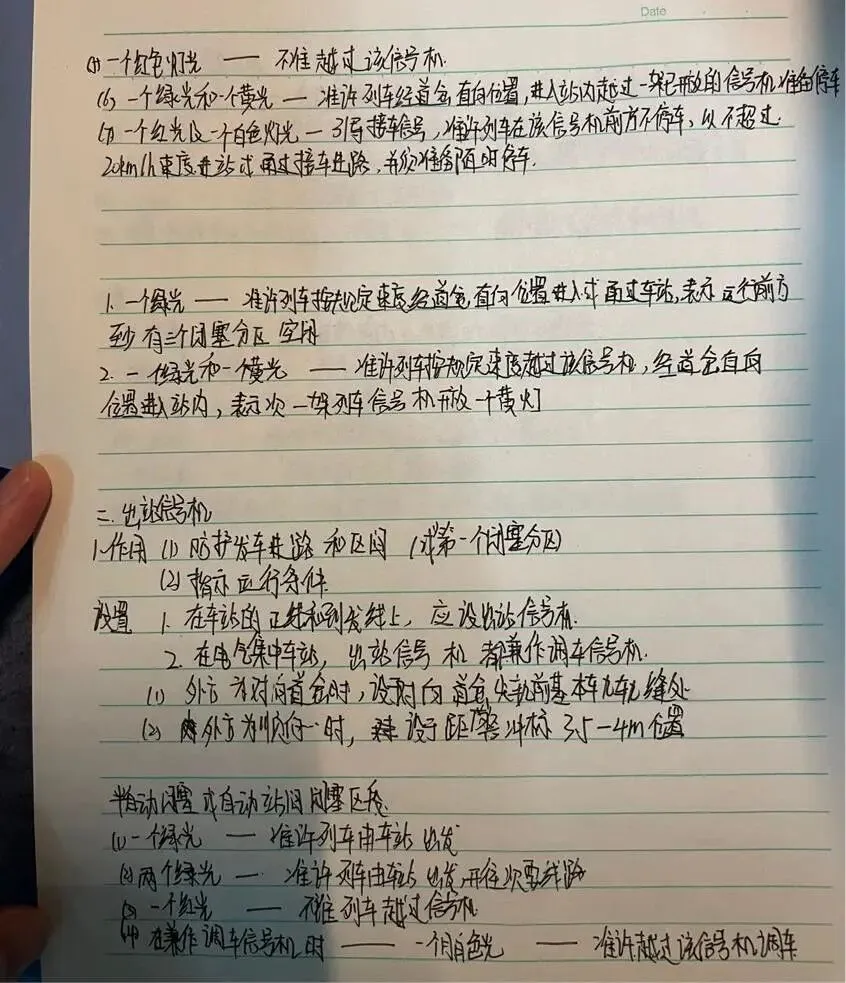 Date
一个红色灯光 —— 不准越过该信号机.
(6) 一个绿光和一个黄光 — 准许列车经道岔直向位置,进入站内越过一架已开放的信号机准备停车
一个红光及一个白色灯光 — 引导接车信号,准许列车在该信号机前方不停车,以不超过
20km/h速度进站或通过接车进路,并须准备随时停车.
1. 一个绿光 —— 准许列车按规定速度经道岔直向位置进入或通过车站,表示运行前方
至少有三个闭塞分区空闲
2. 一个绿光和一个黄光 —— 准许列车按规定速度越过该信号机,经道岔直向
位置进入站内,表示次一架列车信号机开放一个黄灯
二.出站信号机
1.作用 (1) 防护发车进路和区间 (或第一个闭塞分区)
(2) 指示运行条件
设置 1. 在车站的正线和到发线上,应设出站信号机.
2. 在电气集中车站,出站信号机都兼作调车信号机.
(1) 外方为对向道岔时,设对向道岔尖轨前基本轨轨缝处
(2) 外方为顺向一时,设于距警冲标 3.5-4m位置
半自动闭塞或自动站间闭塞区段.
(1) 一个绿光 —— 准许列车由车站出发
(2) 两个绿光 — 准许列车由车站出发,开往次要线路
(3) 一个红光 —— 不准列车越过信号机
(4) 在兼作调车信号机时 —— 一个月白色光 —— 准许越过该信号机调车